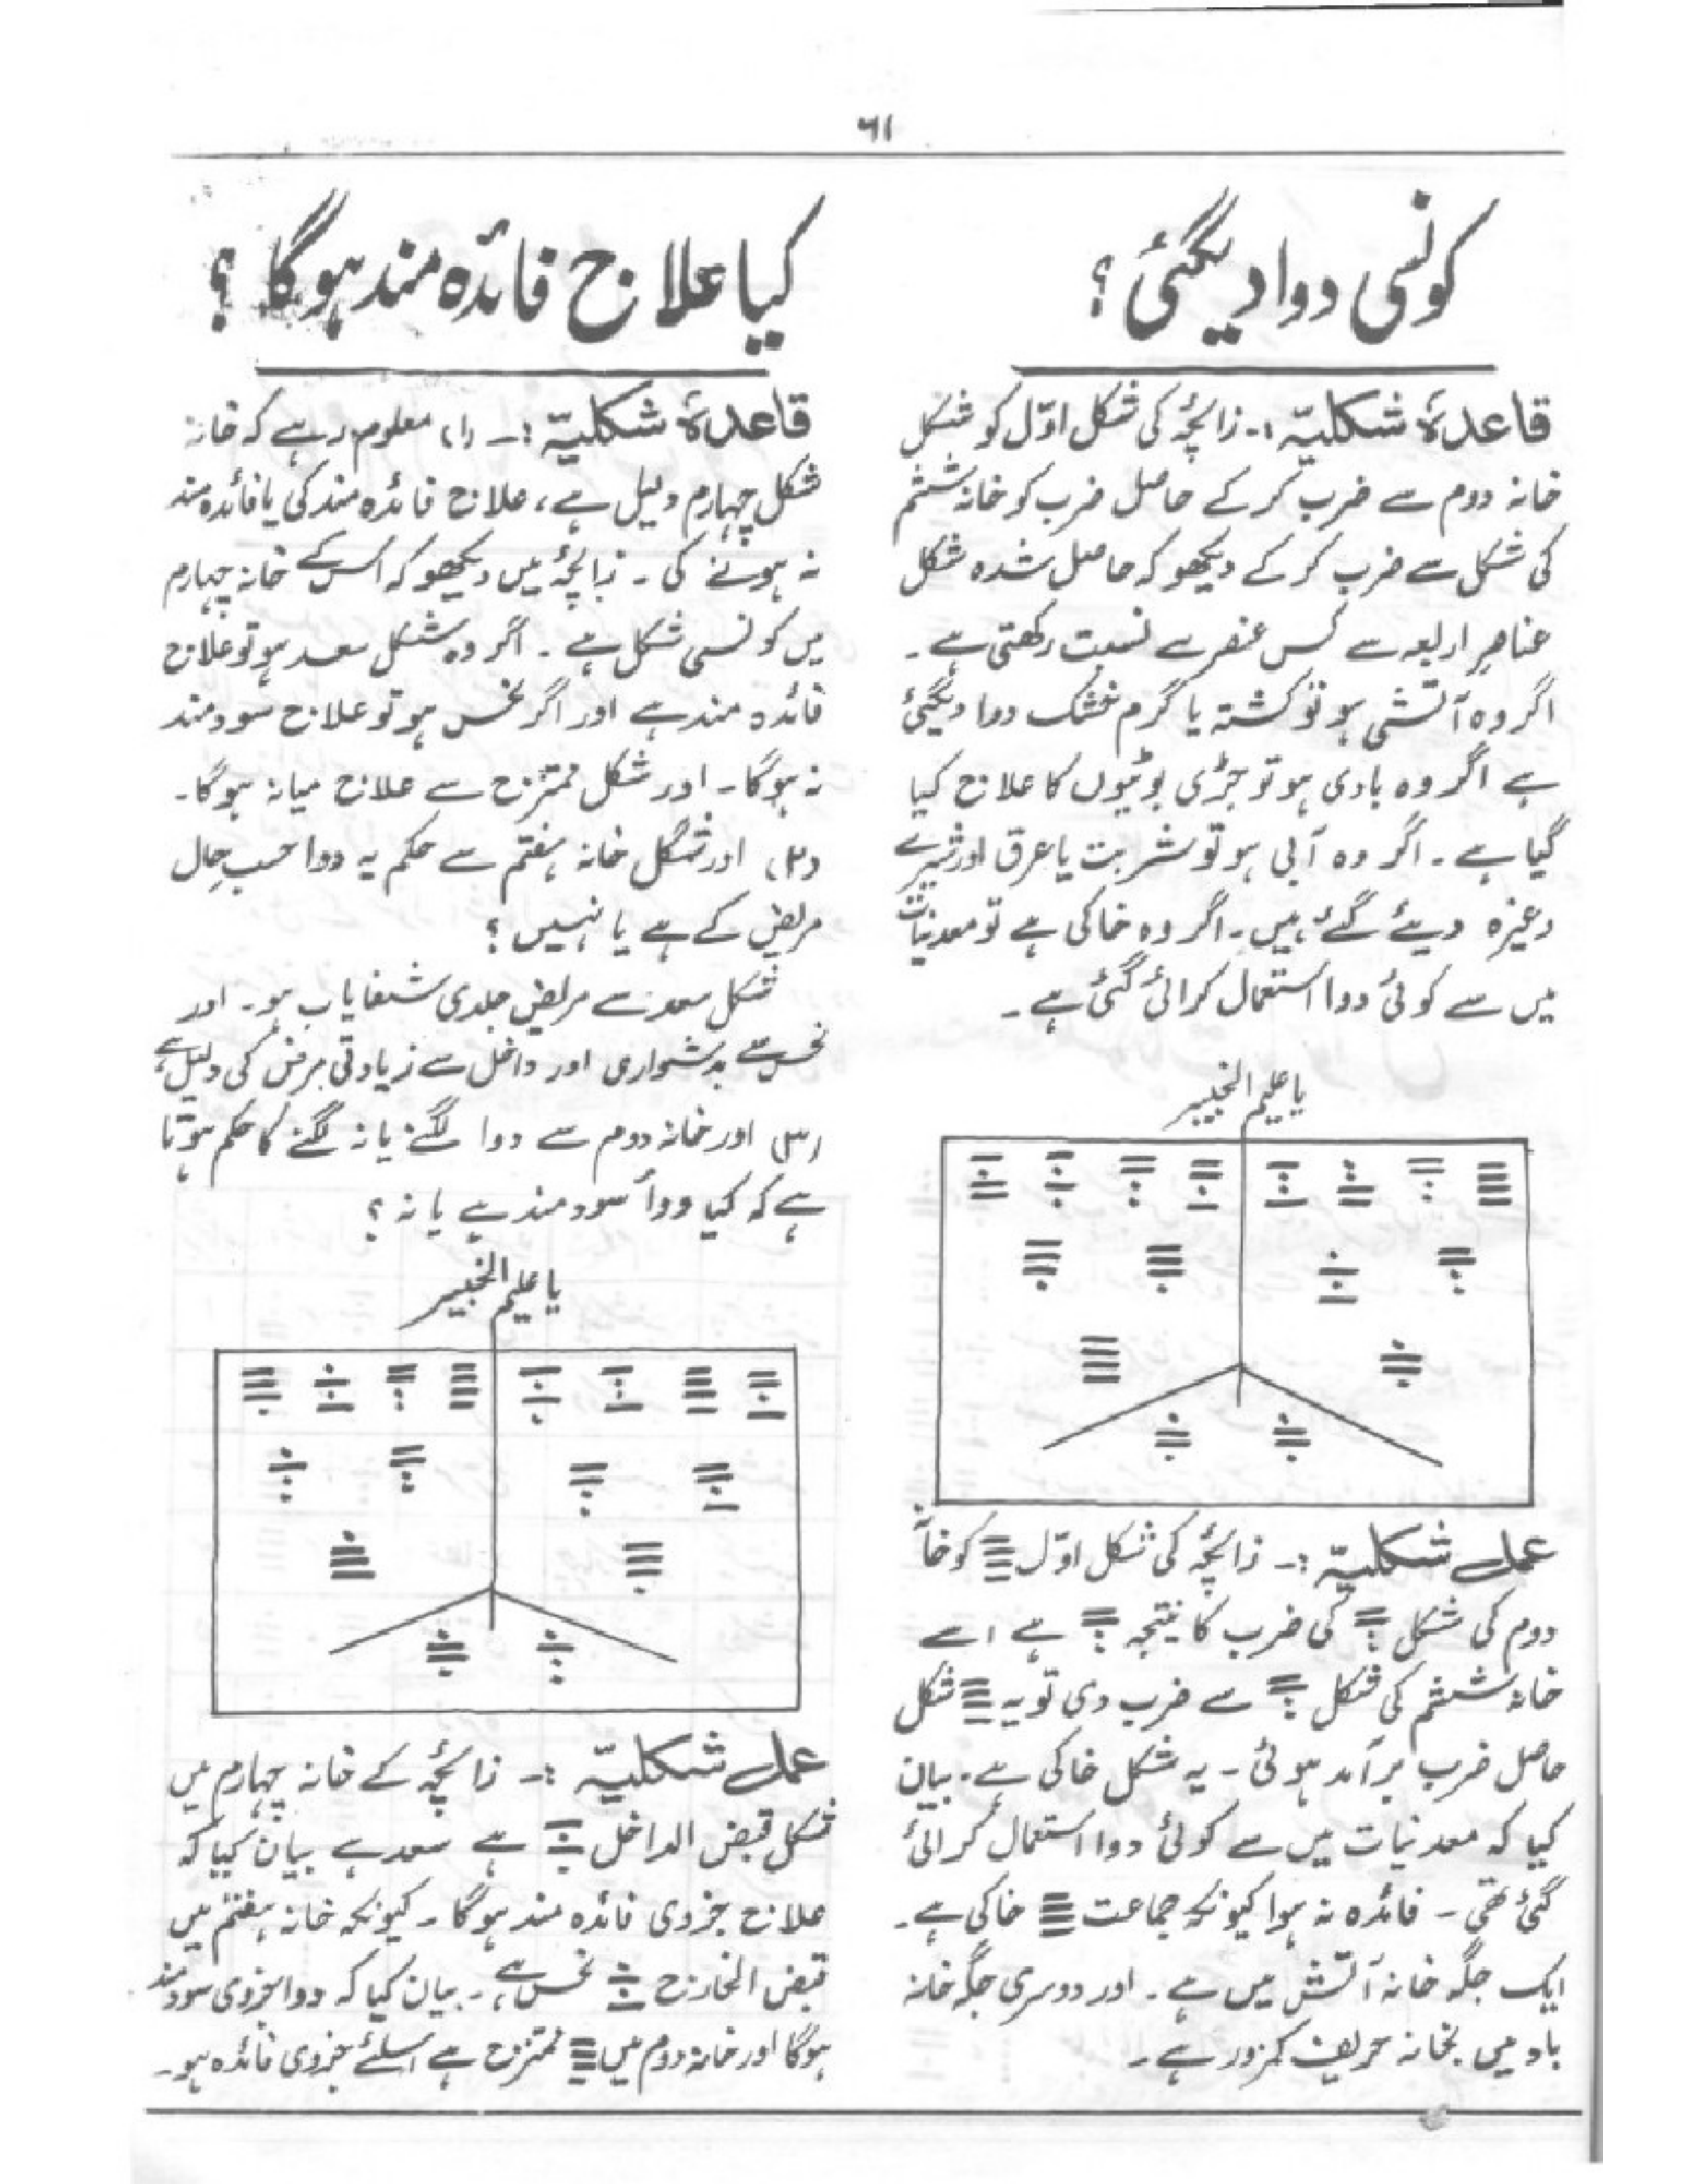 ٦١
کونسی دوا دیگئی؟
قاعدۂ شکلیّہ :۔ زائچہ کی شکل اوّل کو شکل
خانہ دوم سے ضرب کر کے حاصل ضرب کو خانہ ششم
کی شکل سے ضرب کر کے دیکھو کہ حاصل شدہ شکل
عناصرِ اربعہ سے کس عنصر سے نسبت رکھتی ہے ۔
اگر وہ آتشی ہو تو کشتہ یا گرم خشک دوا دیگئی
ہے اگر وہ بادی ہو تو جڑی بوٹیوں کا علاج کیا
گیا ہے ۔ اگر وہ آبی ہو تو شربت یا عرق اور شیرے
وغیرہ دیئے گئے ہیں ۔ اگر وہ خاکی ہے تو معدنیات
میں سے کوئی دوا استعمال کرائی گئی ہے ۔
یا علیم الخبیر
عمل شکلیّہ :۔ زائچہ کی شکل اوّل کو خانہ
دوم کی شکل کی ضرب کا نتیجہ ہے اسے
خانہ ششم کی شکل سے ضرب دی تو یہ شکل
حاصل ضرب برآمد ہوئی ۔ یہ شکل خاکی ہے ۔ بیان
کیا کہ معدنیات میں سے کوئی دوا استعمال کرائی
گئی تھی ۔ فائدہ نہ ہوا کیونکہ جماعت خاکی ہے ۔
ایک جگہ خانہ آتش میں ہے ۔ اور دوسری جگہ خانہ
باد میں بخانہ حریف کمزور ہے ۔
کیا علاج فائدہ مند ہوگا؟
قاعدۂ شکلیّہ :۔ (۱) معلوم رہے کہ خانہ
شکل چہارم دلیل ہے ، علاج فائدہ مند کی یا فائدہ مند
نہ ہونے کی ۔ زائچہ میں دیکھو کہ اس کے خانہ چہارم
میں کونسی شکل ہے ۔ اگر وہ شکل سعد ہو تو علاج
فائدہ مند ہے اور اگر نحس ہو تو علاج سودمند
نہ ہوگا ۔ اور شکل ممتزج سے علاج میانہ ہوگا ۔
(۲) اور شکل خانہ ہفتم سے حکم یہ دوا حسبِ حال
مریض کے ہے یا نہیں ؟
شکل سعد سے مریض جلدی شفایاب ہو ۔ اور
نحس سے بدشواری اور داخل سے زیادتی مرض کی دلیل ہے
(۳) اور خانہ دوم سے دوا لگنے یا نہ لگنے کا حکم ہوتا
ہے کہ کیا دوا سودمند ہے یا نہ ؟
یا علیم الخبیر
عمل شکلیّہ :۔ زائچہ کے خانہ چہارم میں
شکل قبض الداخل ہے سعد ہے بیان کیا کہ
علاج جزوی فائدہ مند ہوگا ۔ کیونکہ خانہ ہفتم میں
قبض الخارج نحس ہے ۔ بیان کیا کہ دوا جزوی سودمند
ہوگا اور خانہ دوم میں ممتزج ہے اسلئے جزوی فائدہ ہو ۔